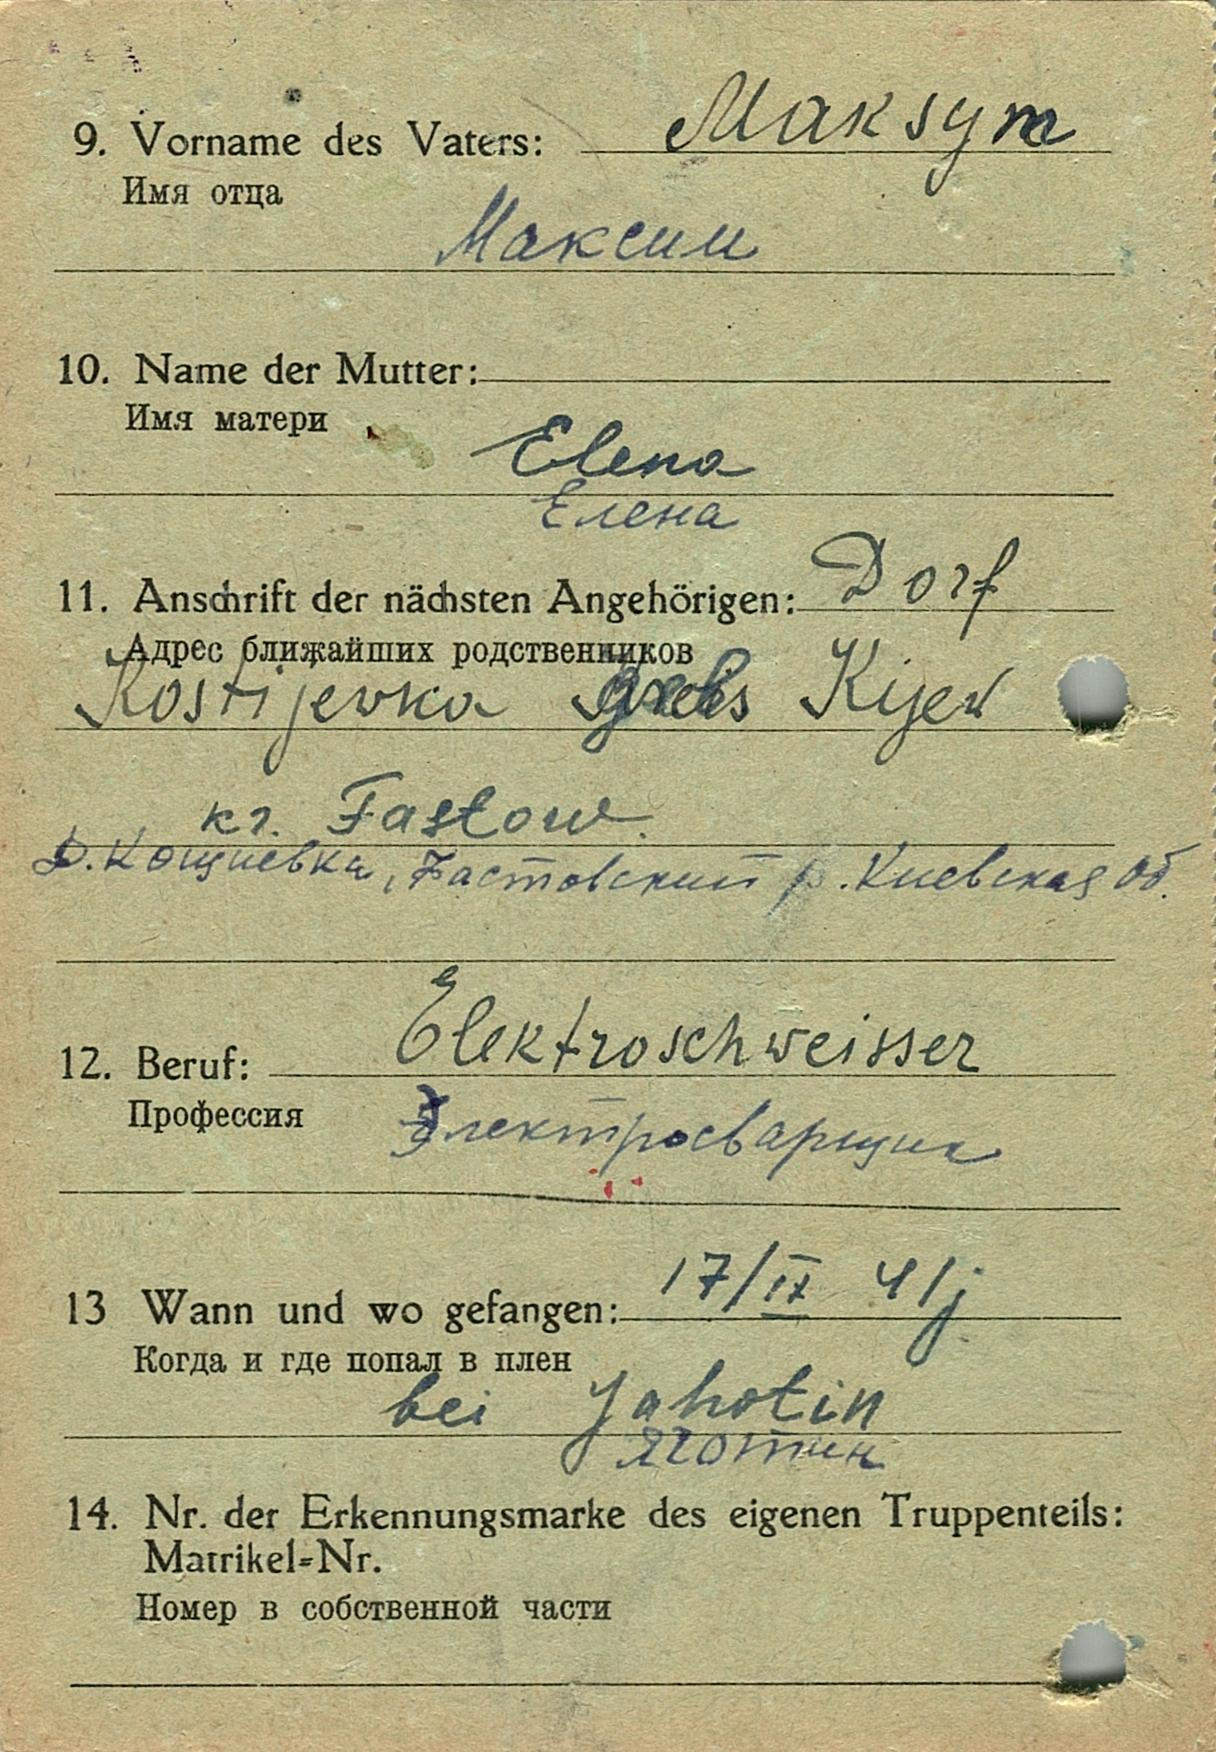 9. Vorname des Vaters: Maksym
Имя отца
Максим
10. Name der Mutter:
Имя матери
Elena
Елена
11. Anschrift der nächsten Angehörigen: Dorf
Адрес ближайших родственников
Kostijevka Kijew
кг. Fastow.
Д. Кощиевка, Фастовский р. Киевская об.
Elektroschweisser
12. Beruf:
Профессия
Электросварщик
13 Wann und wo gefangen: 17/IX 41 j
Когда и где попал в плен
bei Jahotin
Яготин
14. Nr. der Erkennungsmarke des eigenen Truppenteils:
Matrikel=Nr.
Номер в собственной части